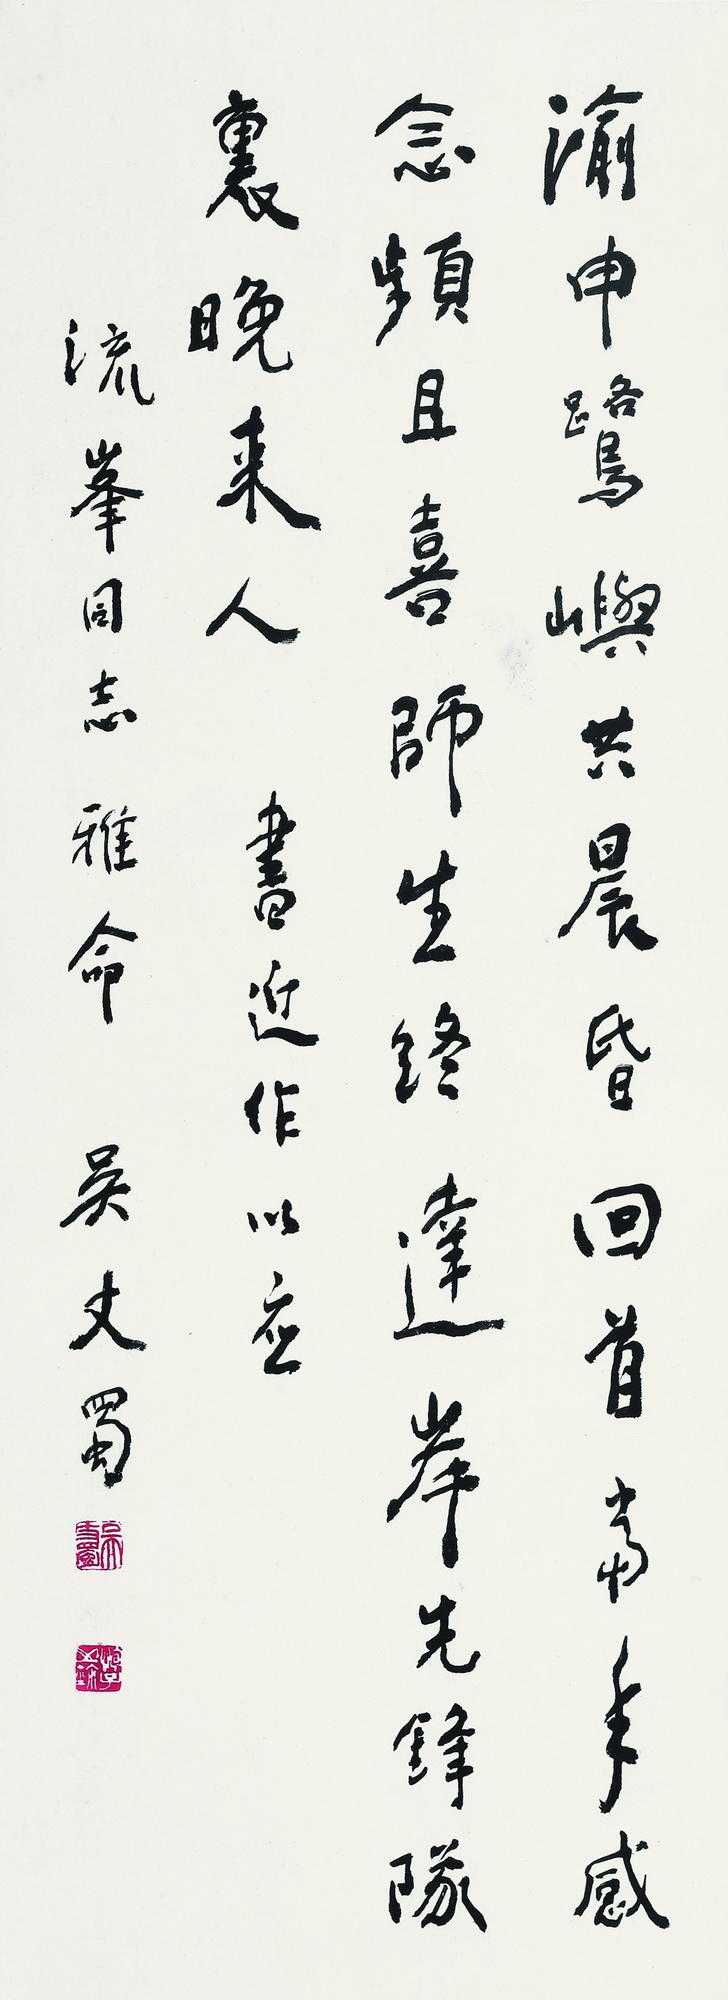 渝申鷺嶼共晨昏回首當年感
念頻且喜師生終達岸先鋒隊
裏晚来人　書近作以应
流峯同志雅命　吴丈蜀
吴丈蜀